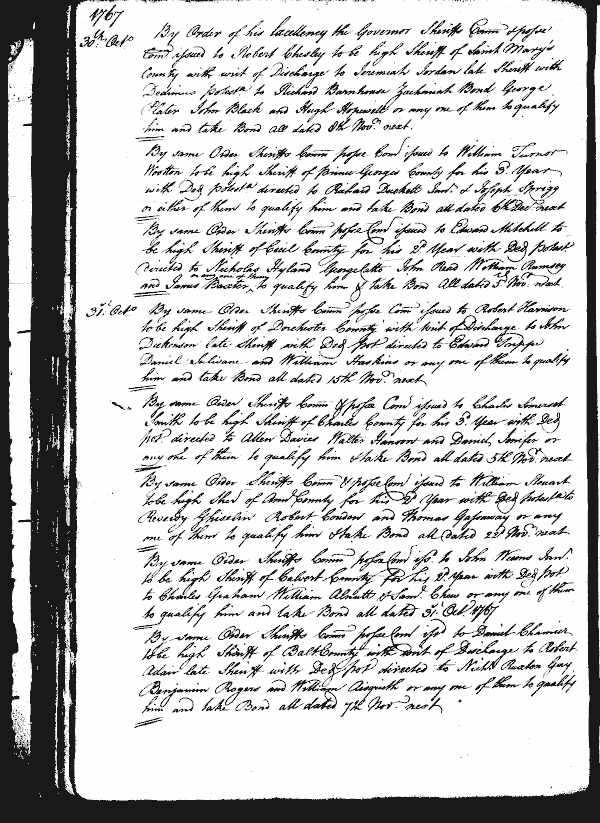 1767
30th Octo By Order of his Excellency the Governor Sheriffs Comn & posse
Comt issued to Robert Chesley to be high Sheriff of Saint Mary's
County with writ of Discharge to Jeremiah Jordan late Sheriff with
Dedimus potesta to Richard Barnhouse Zachariah Bond George
Plater John Black and Hugh Hopewell or any one of them to qualify
him and take Bond all dated 8th Novr next.
By same Order Sheriffs Comn posse Comt issued to William Turnor
Wootton to be high Sheriff of prince Georges County for his 3d Year
with Ded potesta directed to Richard Duckett Junr & Joseph Sprigg
or either of them to qualify him and take Bond all dated 6th Decr next
By same Order Sheriffs Comn posse Com issued to Edward Mitchell to
be high Sheriff of Cecil County for his 2d Year with Ded potest
directed to Nicholas Hyland George Catto John Read William Rumsey
or any one of them
and James Baxter to qualify him & take Bond All dated 5th Novr next
31st Octo By same Order Sheriffs Comn posse Com issued to Robert Harrison
to be high Sheriff of Dorchester County with writ of Discharge to John
Dickinson late Sheriff with Ded pot directed to Edward Trippe
Daniel Sulivane and William Haskins or any one of them to qualify
him and take Bond all dated 15th Novr next
By same Order Sheriffs Comn & posse Com issued to Charles Somerset
Smith to be high Sheriff of Charles County for his 3d Year with Ded
pot directed to Allen Davies Walter Hanson and Daniel Jenifer or
any one of them to qualify him & take Bond all dated 5th Novr next
By same Order Sheriffs Comn & posse Com issued to William Steuart
to be high Sher of Annl County for his 2d Year with Ded potesta to
Reverdy Ghiselin Robert Couden and Thomas Gassaway or any
one of them to qualify him & take Bond all dated 23d Novr next
By same Order Sheriffs Comn posse Com issd to John Weems Junr
to be high Sheriff of Calvert County for his 2d Year with Ded pot
to Charles Graham William Allnutt & Saml Chew or any one of them
to qualify him and take Bond all dated 31st Octr 1767
By same Order Sheriffs Comn posse Com issd to Daniel Chamier
to be high Sheriff of Balt County with writ of Discharge to Robert
Adair late Sheriff with Ded pot directed to Nichs Ruxton Gay
Benjamin Rogers and William Aisquith or any one of them to qualify
him and take Bond all dated 7th Novr next